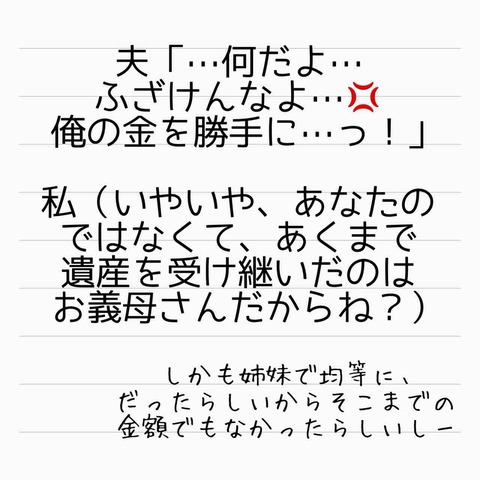 夫「…何だよ…
ふざけんなよ…💢
俺の金を勝手に…っ！」
私（いやいや、あなたの
ではなくて、あくまで
遺産を受け継いだのは
お義母さんだからね？）
しかも姉妹で均等に、
だったらしいからそこまでの
金額でもなかったらしいしー